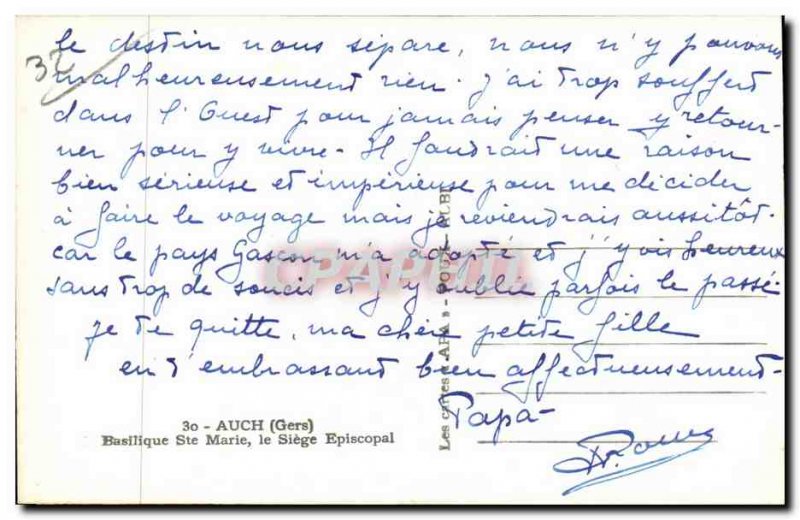 32
le destin nous sépare, nous n'y pouvons
malheureusement rien. J'ai trop souffert
dans l'Ouest pour jamais penser y retour-
ner pour y vivre - Il faudrait une raison
bien sérieuse et impérieuse pour me décider
à faire le voyage mais je reviendrais aussitôt.
car le pays Gascon m'a adopté et j'y vis heureux
sans trop de soucis et j'y oublie parfois le passé.
je te quitte, ma chère petite fille
en t'embrassant bien affectueusement-
Papa-
30 - AUCH (Gers)
Basilique Ste Marie, le Siège Episcopal
Les cartes « APA » - POUX - ALBI
CPAPHIL